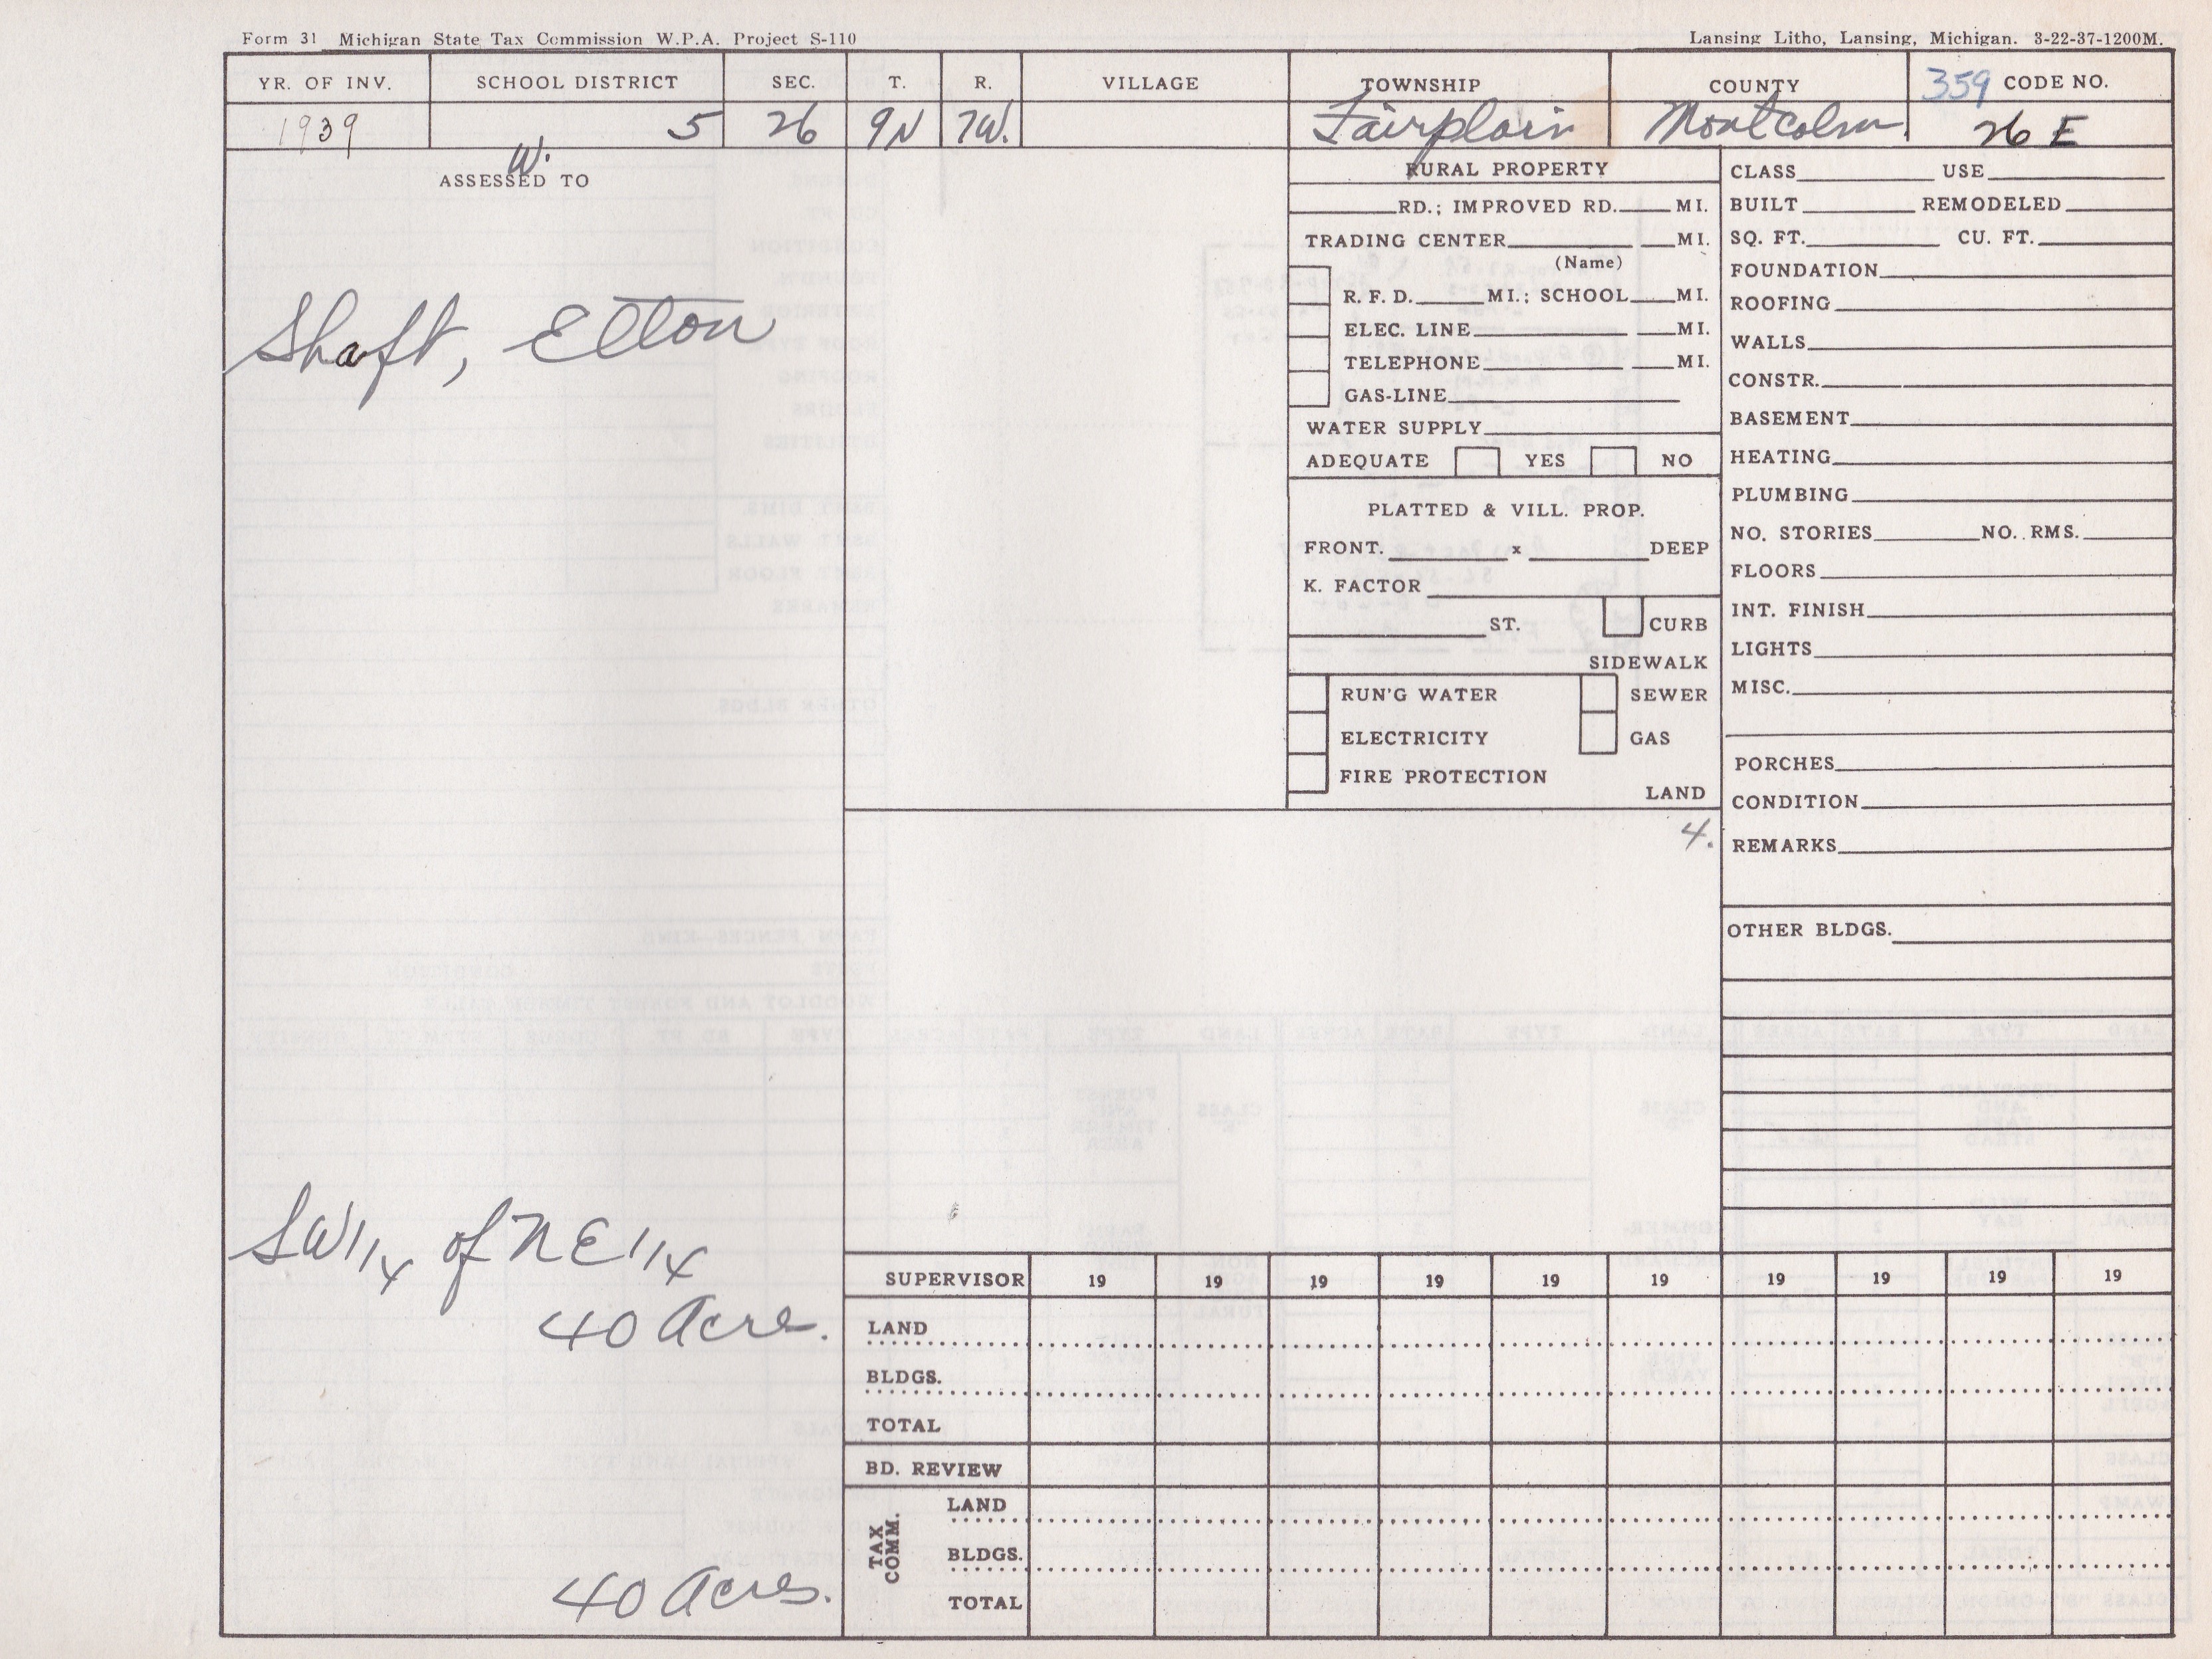 Form 31 Michigan State Tax Commission W.P.A. Project S-110
Lansing Litho, Lansing, Michigan. 3-22-37-1200M.
YR. OF INV. SCHOOL DISTRICT SEC. T. R. VILLAGE TOWNSHIP COUNTY 359 CODE NO.
1939 5 26 9N 7W. Fairplain Montcolm 26 E
W.
ASSESSED TO
Shaft, Elton
SW 1/4 of NE 1/4
40 Acre.
40 Acres.
RURAL PROPERTY
RD.; IMPROVED RD. MI.
TRADING CENTER MI.
(Name)
R. F. D. MI.; SCHOOL MI.
ELEC. LINE MI.
TELEPHONE MI.
GAS-LINE
WATER SUPPLY
ADEQUATE YES NO
PLATTED & VILL. PROP.
FRONT. x DEEP
K. FACTOR
ST. CURB
SIDEWALK
RUN'G WATER SEWER
ELECTRICITY GAS
FIRE PROTECTION
LAND
4.
CLASS USE
BUILT REMODELED
SQ. FT. CU. FT.
FOUNDATION
ROOFING
WALLS
CONSTR.
BASEMENT
HEATING
PLUMBING
NO. STORIES NO. RMS.
FLOORS
INT. FINISH
LIGHTS
MISC.
PORCHES
CONDITION
REMARKS
OTHER BLDGS.
SUPERVISOR 19 19 19 19 19 19 19 19 19 19
LAND
BLDGS.
TOTAL
BD. REVIEW
TAX COMM.
LAND
BLDGS.
TOTAL